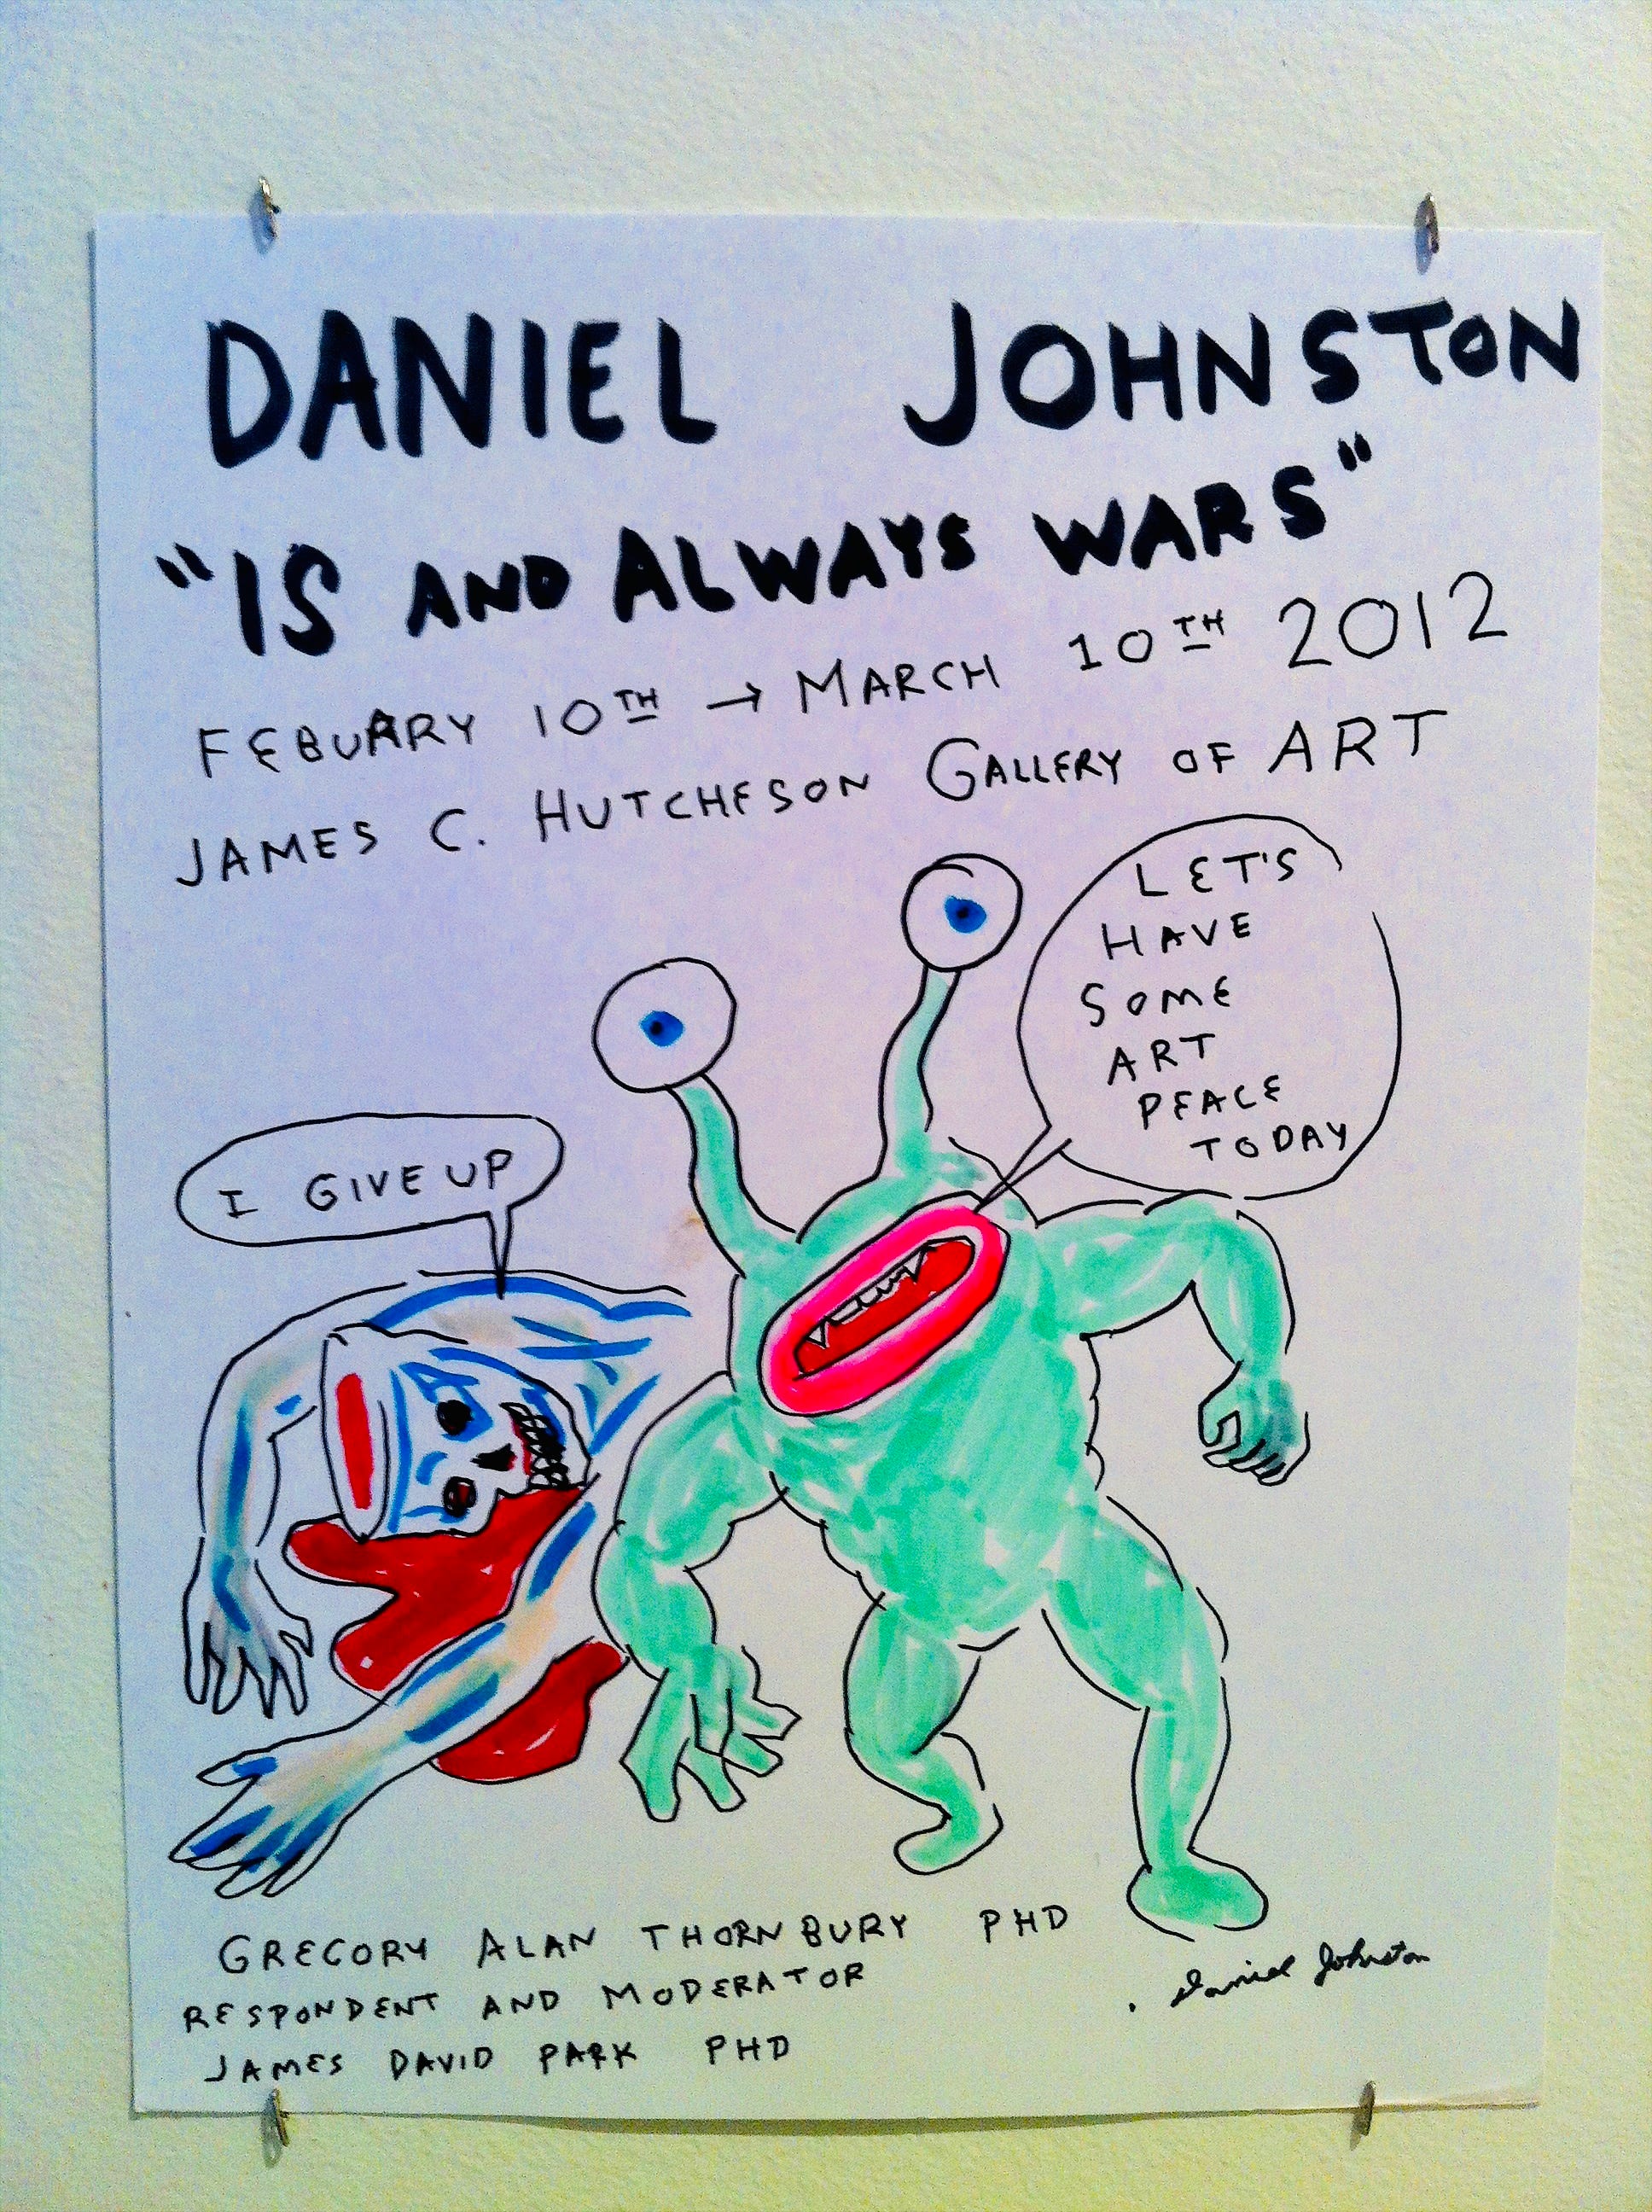 DANIEL JOHNSTON
"IS AND ALWAYS WARS"
FEBUARY 10TH → MARCH 10TH 2012
JAMES C. HUTCHESON GALLERY OF ART
LET'S
HAVE
SOME
ART
PEACE
TODAY
I GIVE UP
GREGORY ALAN THORNBURY PHD
RESPONDENT AND MODERATOR
JAMES DAVID PARK PHD
Daniel Johnston